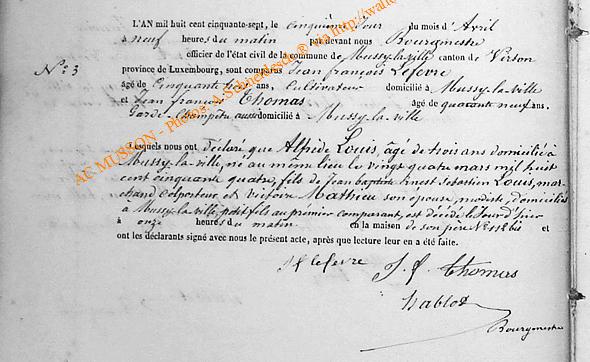 L'AN mil huit cent cinquante-sept, le cinquième jour du mois d'Avril
à neuf heures du matin par devant nous Bourgmestre
officier de l'état civil de la commune de Mussy-la-ville canton de Virton
N° 3
province de Luxembourg, sont comparus Jean françois Lefevre
âgé de Cinquante ans, Cultivateur domicilié à Mussy-la-ville
et Jean françois Thomas âgé de quarante neuf ans,
Garde-Champêtre aussi domicilié à Mussy-la-ville
Lesquels nous ont déclaré que Alfrède Louis, âgé de trois ans domicilié à
Mussy-la-ville, né au même lieu le vingt quatre mars mil huit
cent cinquante quatre, fils de Jean baptiste Ernest Sébastien Louis, mar-
chand Colporteur et Victoire Mathieu son épouse, modiste, domiciliés
à Mussy-la-ville petit fils au premier comparant, est décédé le Jour d'hier
à onze heures du matin en la maison de son père N° 112 bis et
ont les déclarants signé avec nous le présent acte, après que lecture leur en a été faite.
Jf lefevre
J. f. Thomas
Bourgmestre
AC MUSSON - Photos: A.Schneidesch© via http://wall